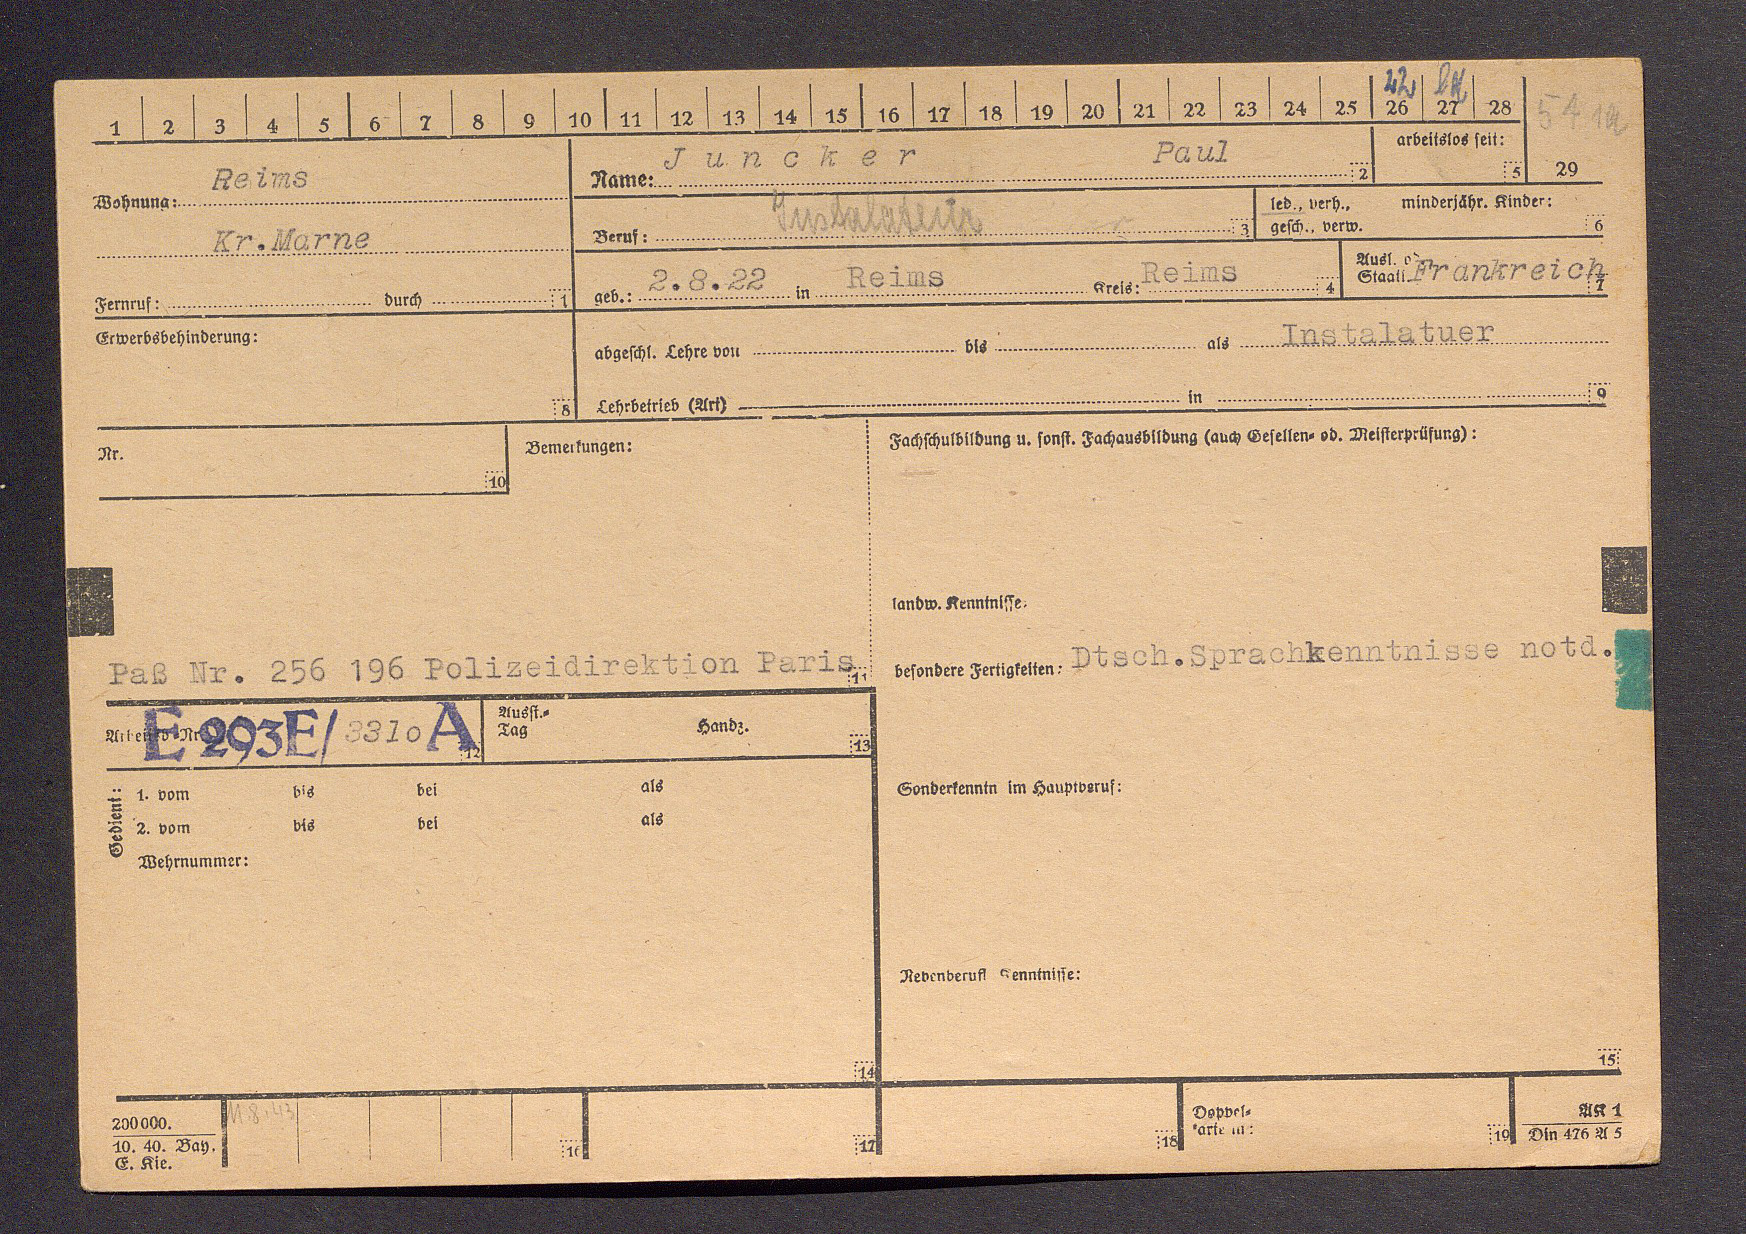 1 2 3 4 5 6 7 8 9 10 11 12 13 14 15 16 17 18 19 20 21 22 23 24 25 26 27 28
Wohnung: Reims
Kr.Marne
Fernruf: durch 1
Name: Juncker Paul 2
arbeitslos seit: 5
29
Beruf: 3
led., verh., gesch., verw.
minderjähr. Kinder: 6
geb.: 2.8.22 in Reims Kreis: Reims 4
Staat: Frankreich 7
Erwerbsbehinderung: 8
abgeschl. Lehre von bis als Instalatuer
Lehrbetrieb (Art) in 9
Nr. 10
Bemerkungen:
Paß Nr. 256 196 Polizeidirektion Paris 11
Fachschulbildung u. sonst. Fachausbildung (auch Gesellen- od. Meisterprüfung):
landw. Kenntnisse:
besondere Fertigkeiten: Dtsch.Sprachkenntnisse notd.
E 293E/ 3310 A 12
Ausst.-
Tag Handz. 13
Gedient:
1. vom bis bei als
2. vom bis bei als
Wehrnummer:
14
Sonderkenntn im Hauptberuf:
Nebenberufl Kenntnisse:
15
200000.
10. 40. Bay.
E. Kie.
11.8.43
16 17 18
Doppel-
karte in: 19
AK 1
Din 476 A 5